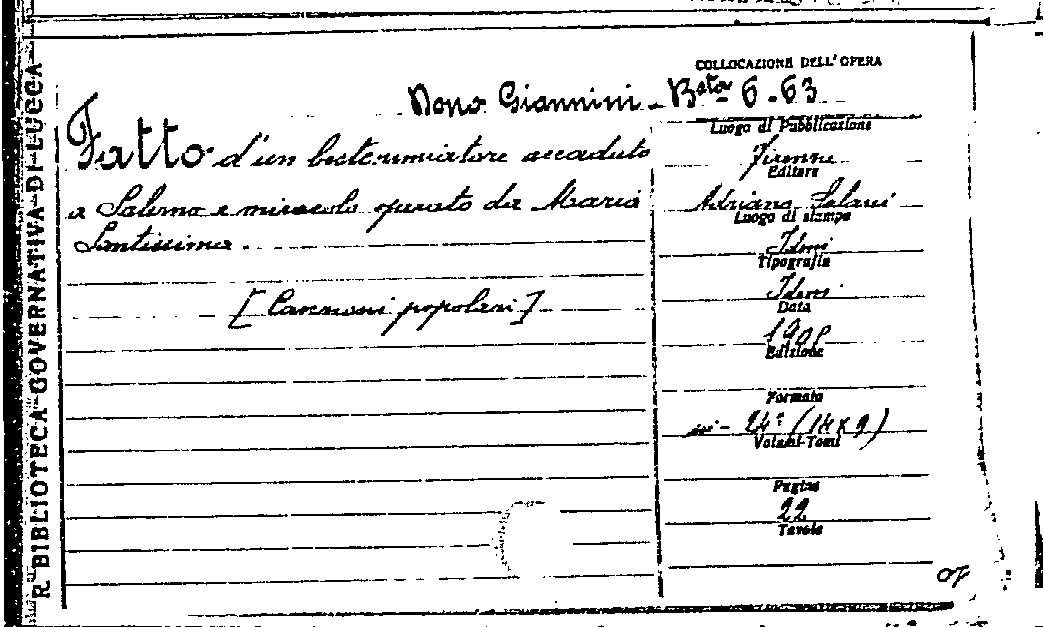 R. BIBLIOTECA GOVERNATIVA DI LUCCA
COLLOCAZIONE DELL'OPERA
Dono Giannini - Bsta 6.63
Fatto d'un bestemmiatore accaduto
a Salerno e miracolo operato da Maria
Santissima.
[Canzoni popolari]
Luogo di Pubblicazione
Firenze
Editore
Adriano Salani
Luogo di stampa
Idem
Tipografia
Idem
Data
Edizione
Formato
in - 24° (14 x 9)
Volumi-Tomi
Pagine
22
Tavole